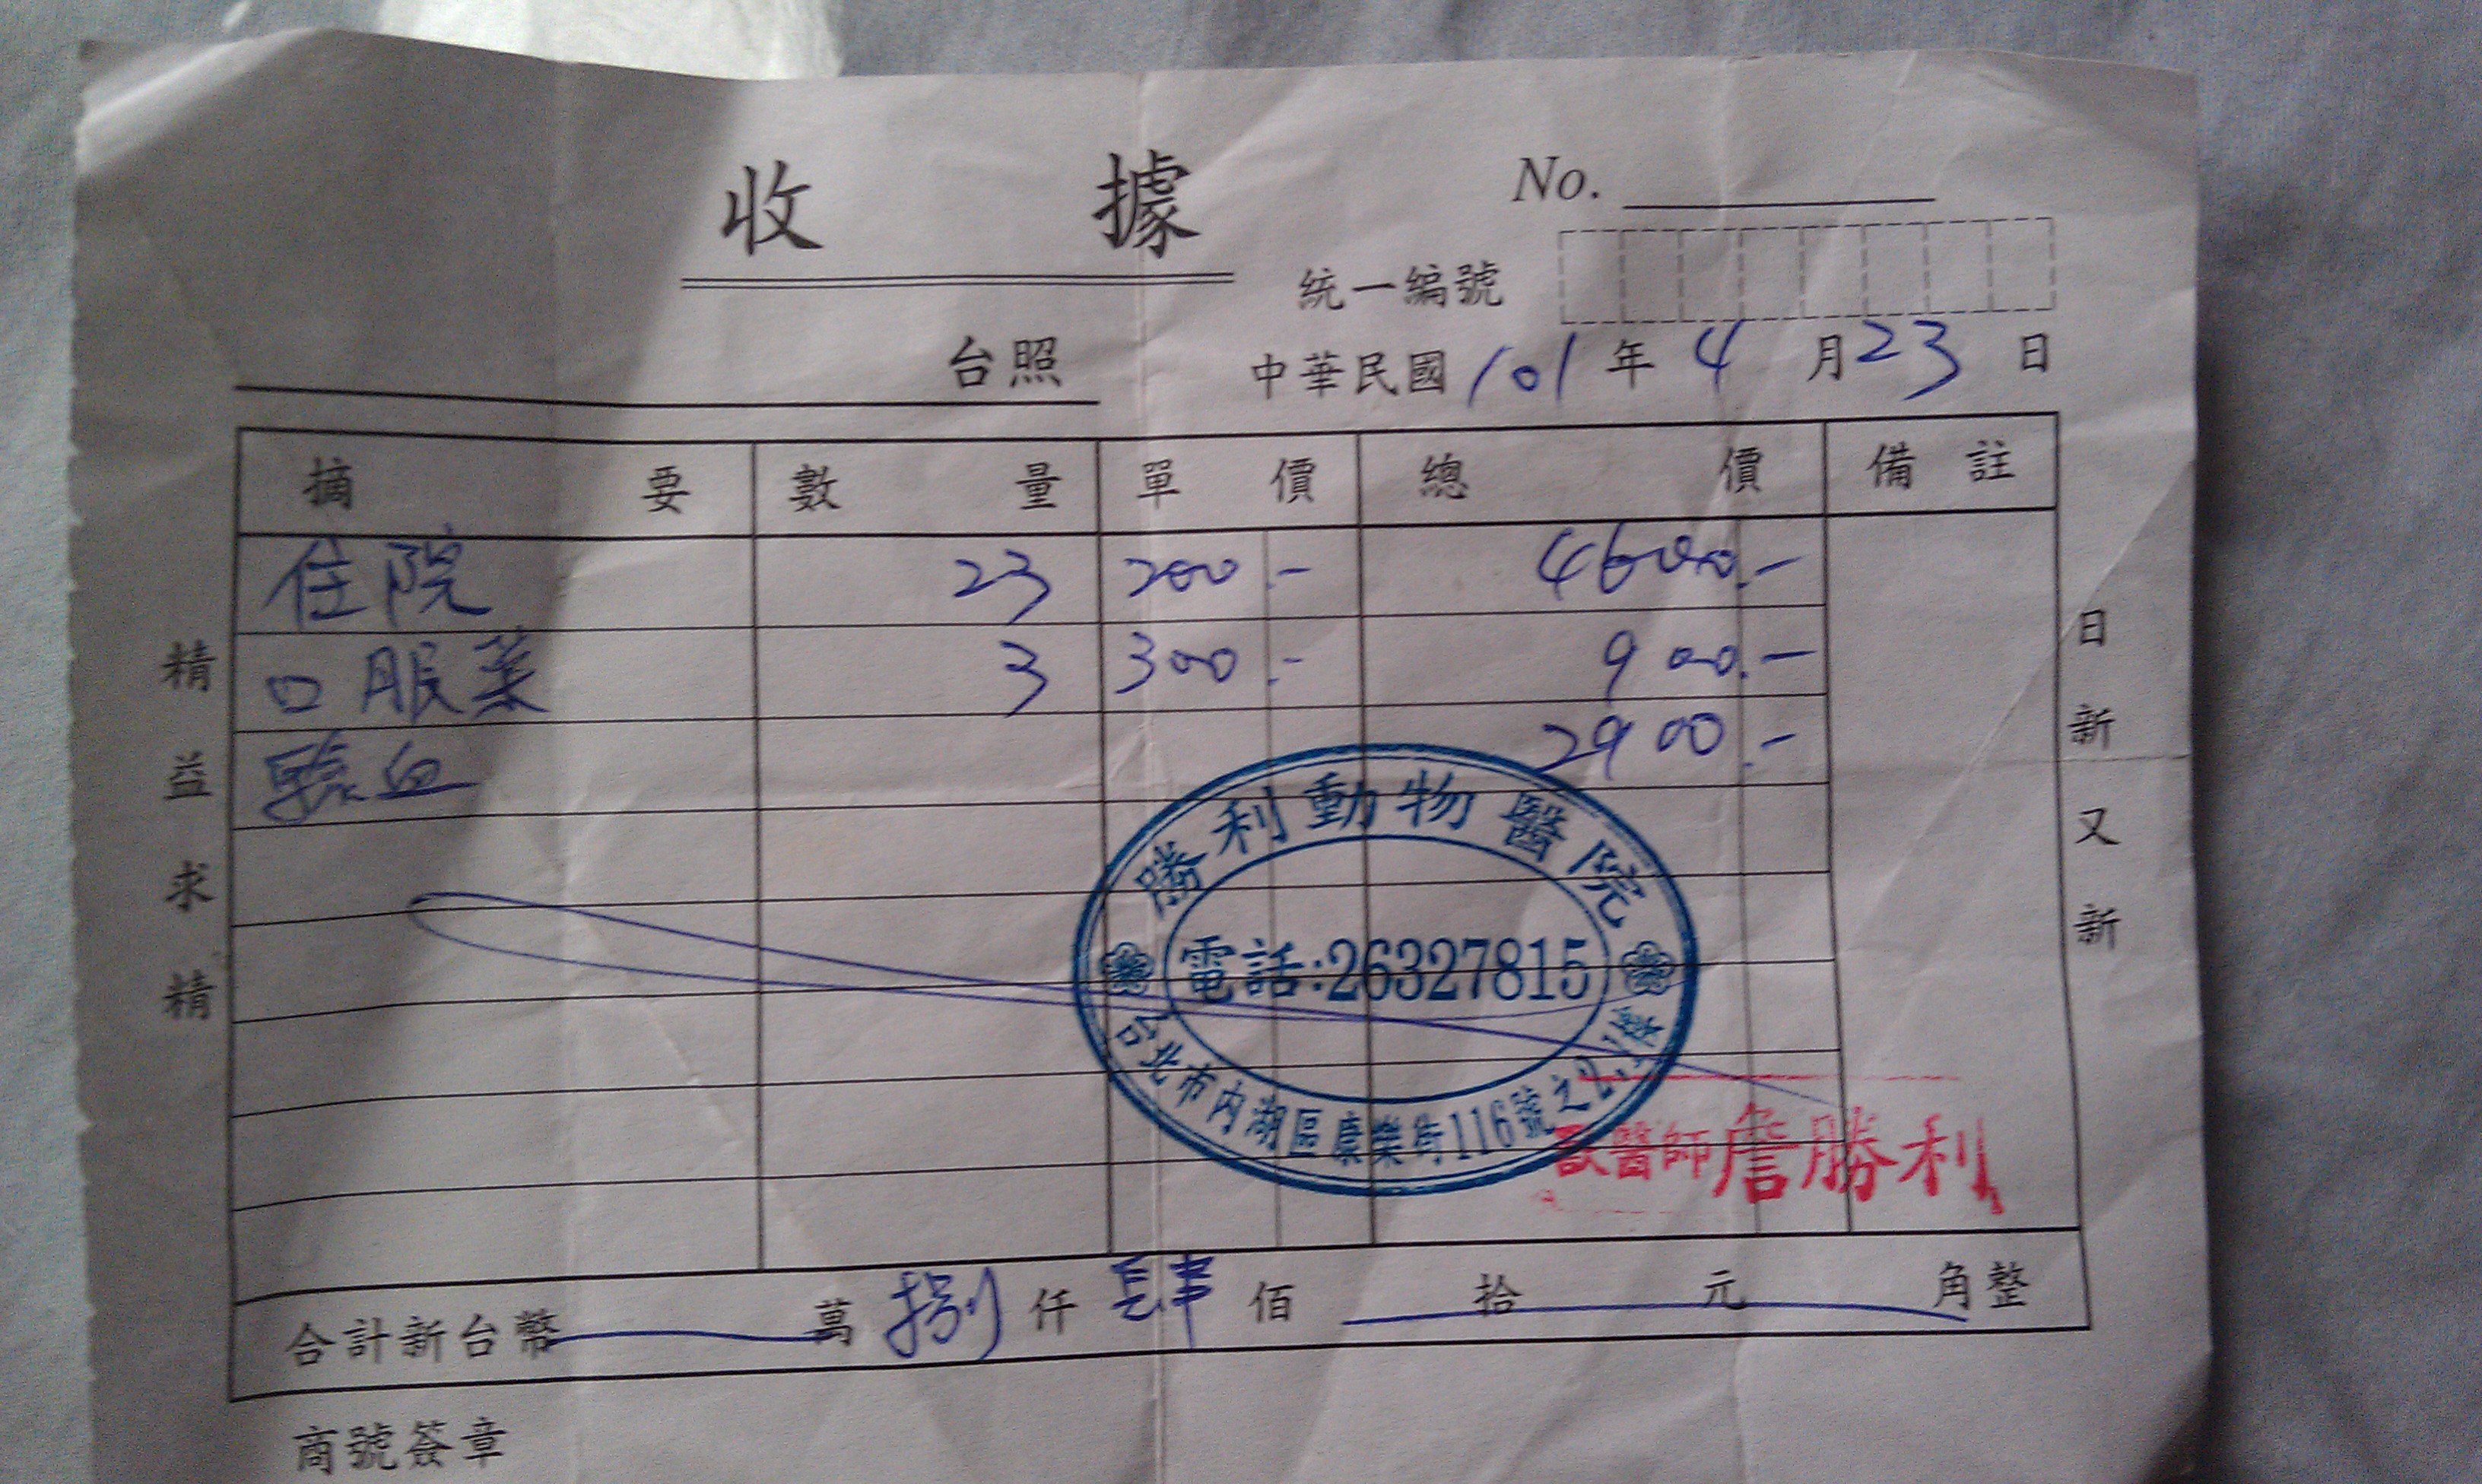 收據
No.
統一編號
台照
中華民國101年4月23日
摘要 數量 單價 總價 備註
住院 23 200.- 4600.-
口服藥 3 300.- 900.-
驗血 2900.-
精益求精
日新又新
勝利動物醫院
電話:26327815
台北市內湖區康樂街116號之2,1樓
獸醫師詹勝利
合計新台幣 萬捌仟肆佰 拾 元 角整
商號簽章